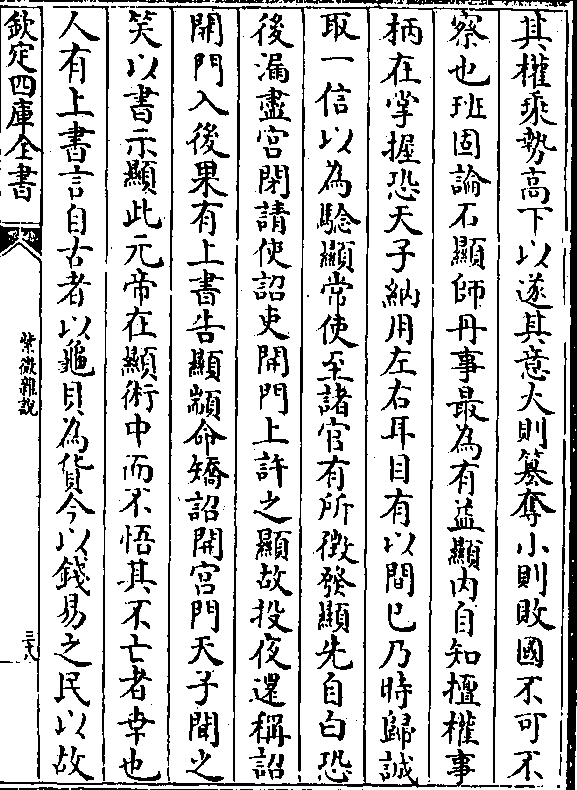 其權乘勢高下以遂其意大則篡奪小則敗國不可不
察也班固論石顯師丹事最為有益顯内自知擅權事
柄在掌握恐天子納用左右耳目有以間已乃時歸誠
取一信以為驗顯常使至諸官有所徴發顯先自白恐
後漏盡宫閉請使詔吏開門上許之顯故投夜還稱詔
開門入後果有上書告顯顓命矯詔開宫門天子聞之
笑以書示顯此元帝在顯術中而不悟其不亡者幸也
人有上書言自古者以龜貝為貨今以錢易之民以故
欽定四庫全書
紫微雜說
三十八